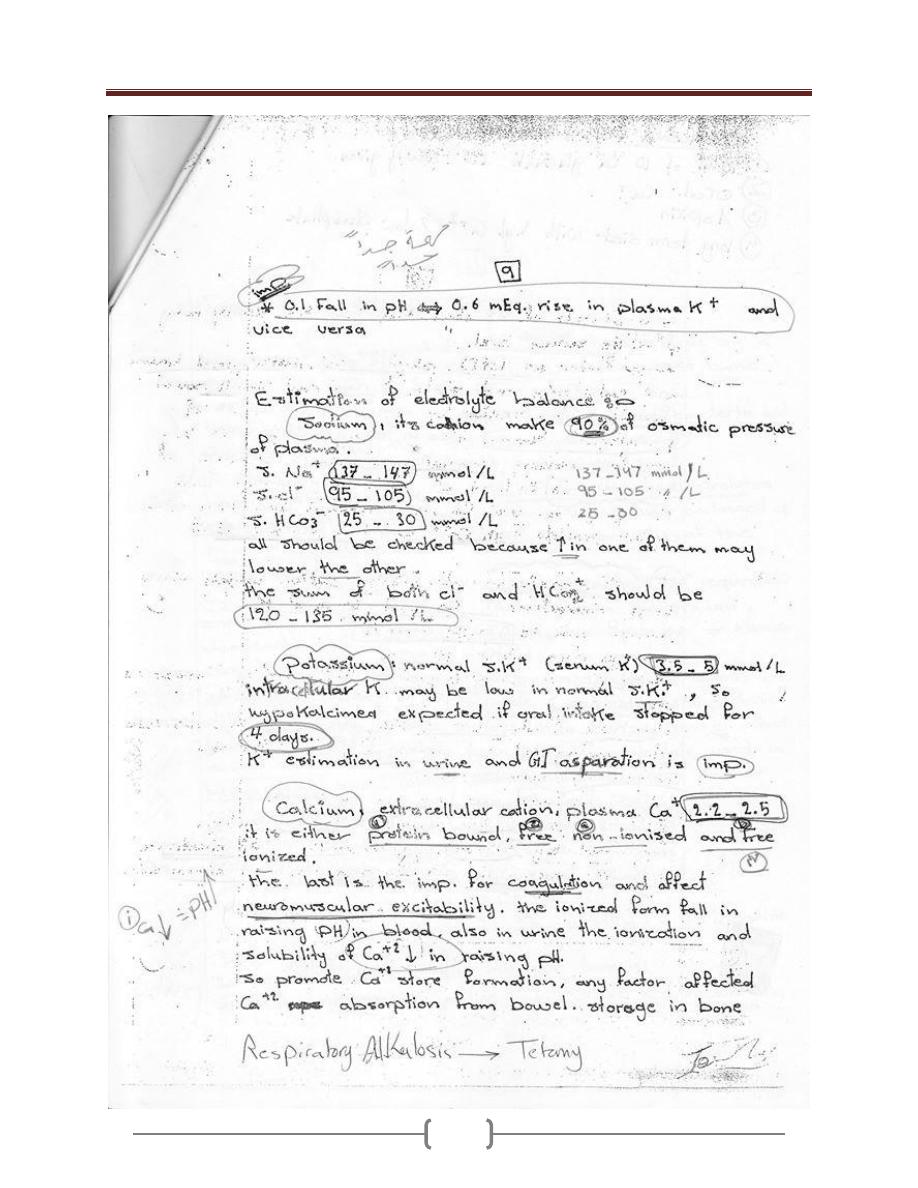 مهمة جداً
9
imp
* 0.1 Fall in pH ⇔ 0.6 mEq. rise in plasma K+ and
vice versa
Estimation of electrolyte balance
Sodium, its cation make 90% of osmatic pressure
of plasma.
S. Na+ 137 - 147 mmol/L 137 - 147 mmol/L
S. cl- 95 - 105 mmol/L 95 - 105 /L
S. HCO3- 25 - 30 mmol/L 25 - 30
all should be checked because ↑ in one of them may
lower the other.
the sum of both cl- and HCO3 should be
120 - 135 mmol/L
potassium: normal S.K+ (serum K) 3.5 - 5 mmol/L
intracellular K may be low in normal S.K+, so
hypokalcimea expected if oral intake stopped for
4 days.
K+ estimation in urine and GI asparation is imp.
Calcium, extracellular cation, plasma Ca+ 2.2 - 2.5
it is either protein bound, free non-ionised and free
ionized.
the last is the imp. for coagulation and affect
neuromuscular excitability. the ionized form fall in
raising PH in blood, also in urine the ionization and
solubility of Ca+2 ↓ in raising pH.
so promote Ca+2 store formation, any factor affected
Ca+2 absorption from bowel. storage in bone
i Ca↓ = PH↑
Respiratory Alkalosis → Tetany